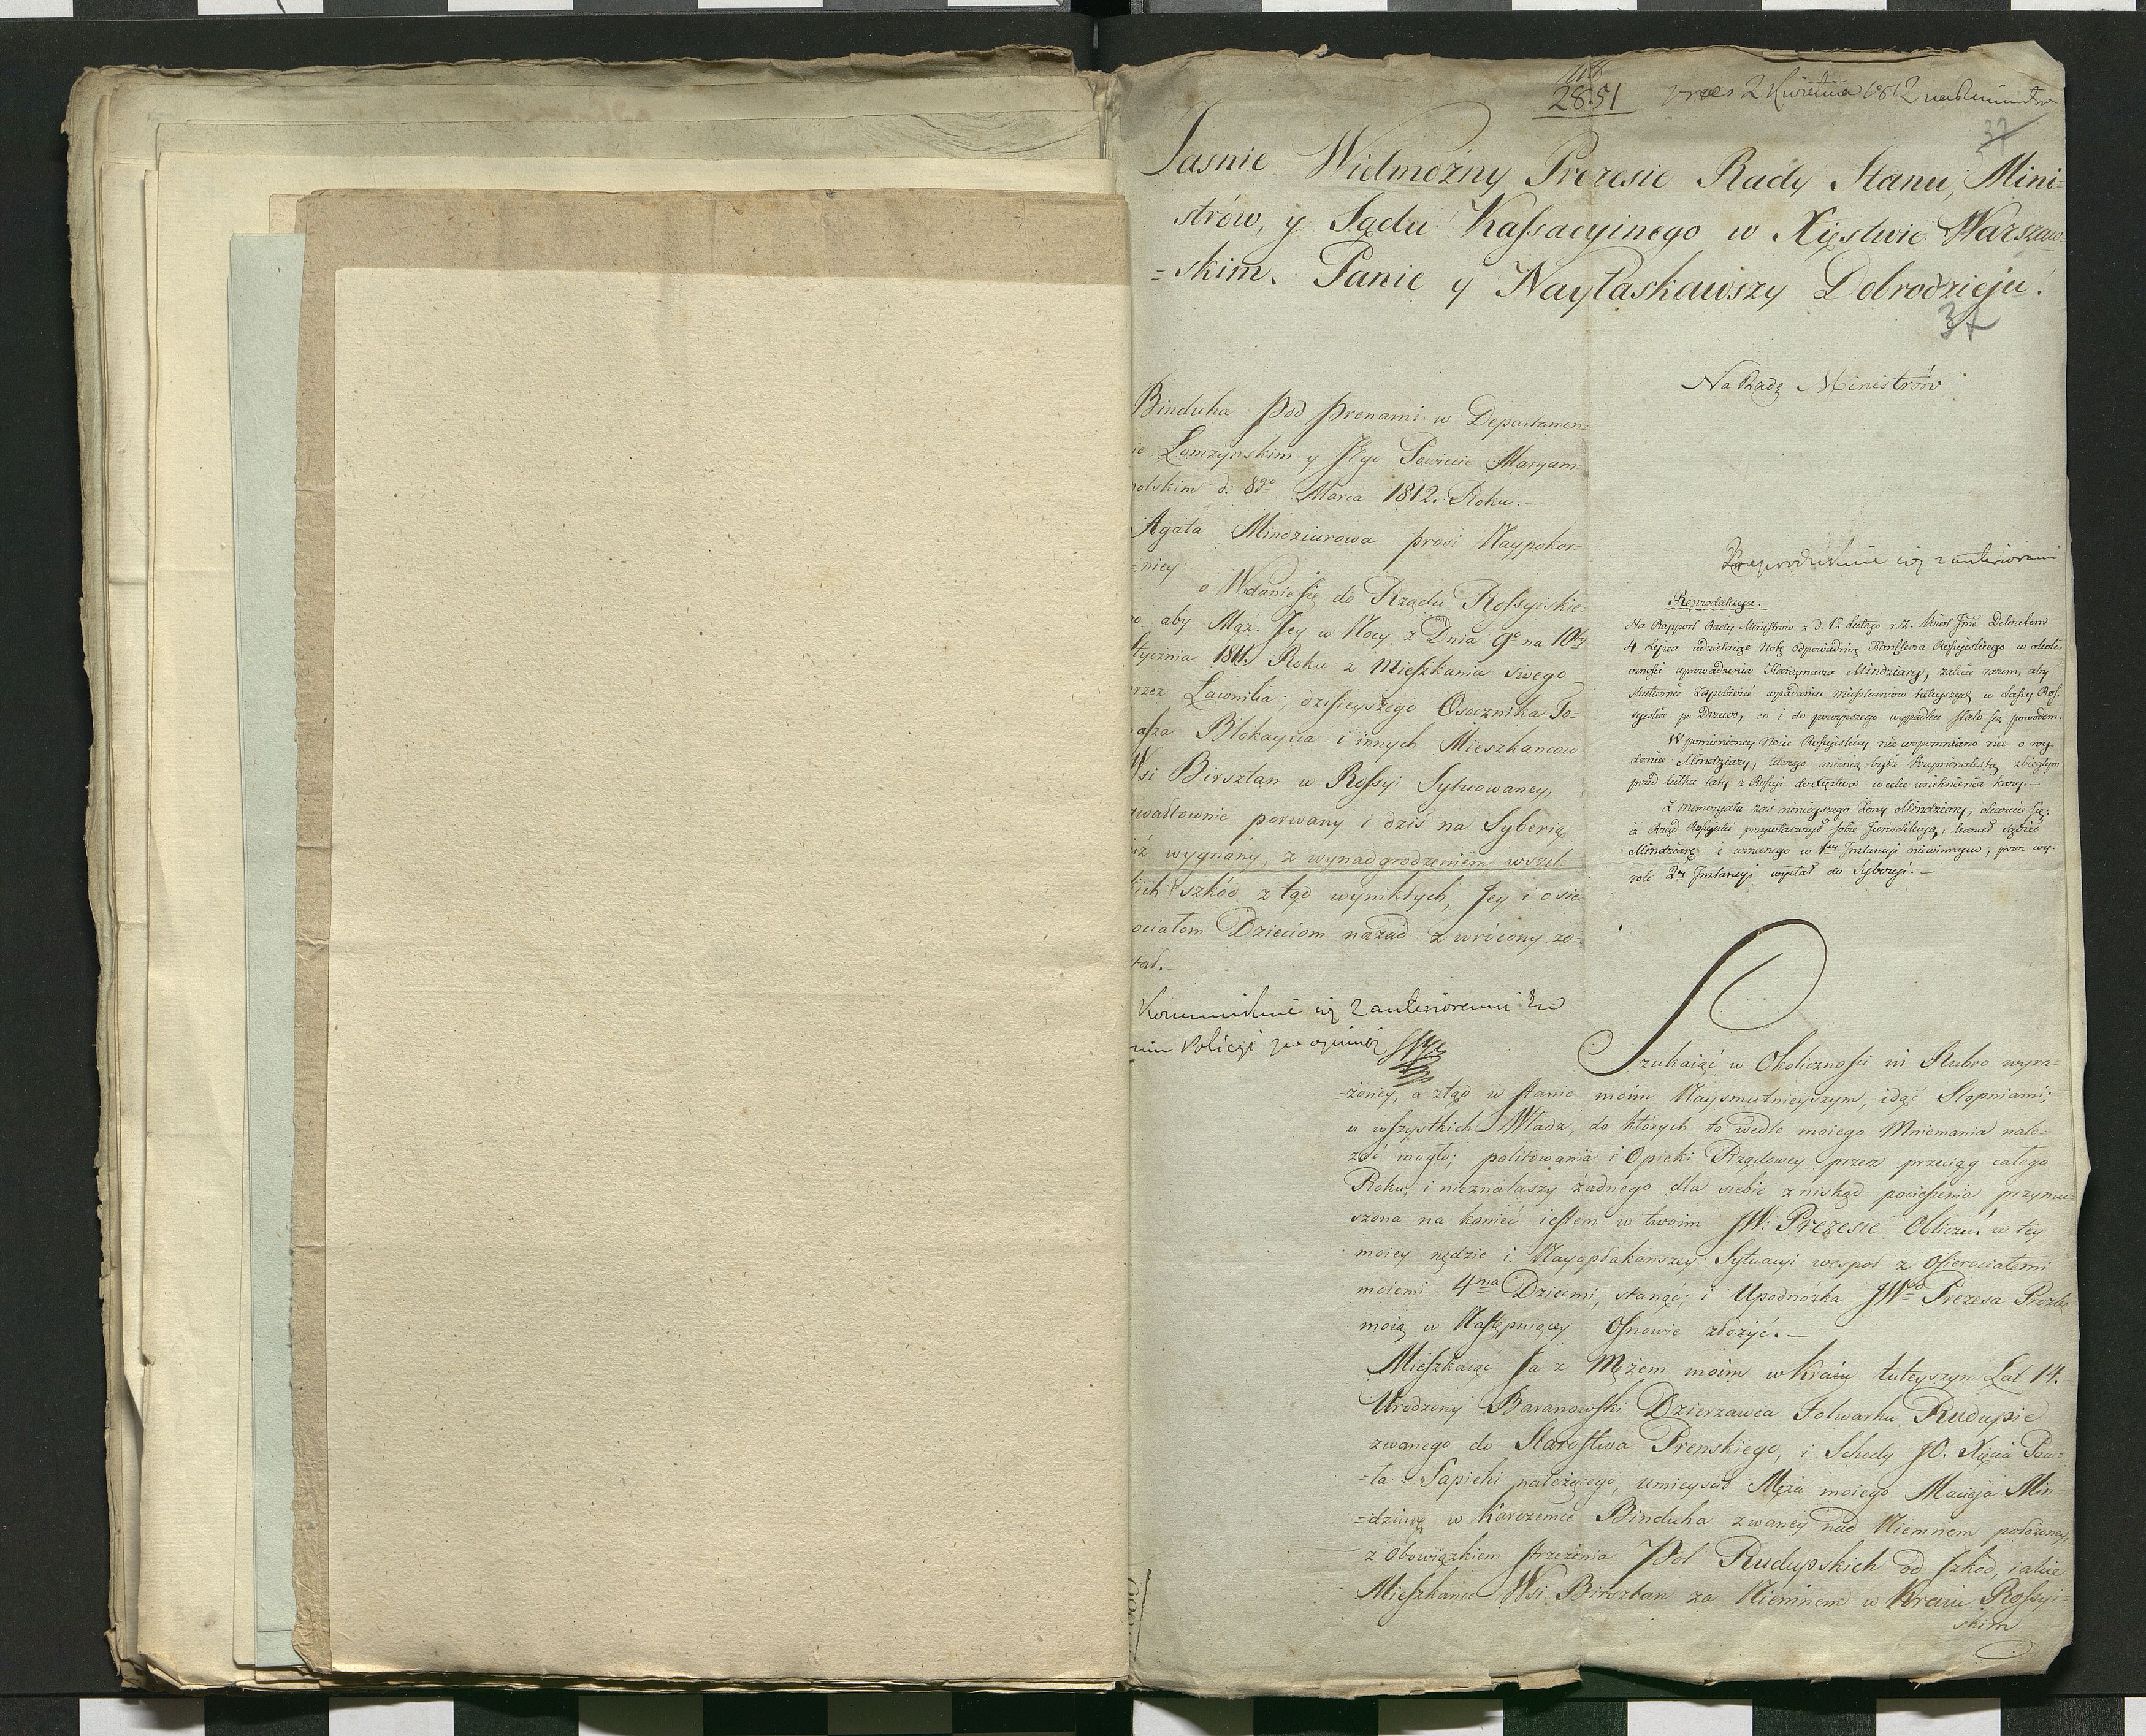 118
2851 praes 2 Kwietnia 1812
37
Jasnie Wielmożny Prezesie Rady Stanu, Mini=
strów, y Sądu Kassacyinego w Xięstwie Warszaw=
=skim. Panie y Nayłaskawszy Dobrodzieju!
37
Na Radę Ministrów
Binduha pod Prenami w Departamen=
ie Łomżynskim y Jego Powiecie Maryam=
polskim d. 8go Marca 1812. Roku.—
Agata Mindziurowa prosi Naypokor=
=niey
o Wdanie się do Rządu Rossyiskie=
go, aby Mąż Jey w Nocy z Dnia 9o na 10ty
Stycznia 1811. Roku z Mieszkania swego
przez Ławnika, dzisieyszego Osocznika To=
masza Blokaycia i innych Mieszkancow
Wsi Birsztan w Rossyi Sytuowaney,
gwałtownie porwany i dziś na Syberią
już wygnany, z wynadgrodzeniem wszel=
kich szkód ztąd wynikłych, Jey i osie=
rociałom Dzieciom nazad zwrócony zo=
stał.—
Kommunikuie się z anteriorami
Policyi po opinią
Reprodukuie się z anteriorami
Reprodukcya.
Na Rapport Rady Ministrow z d. 12 Lutego r. z. Król Jmć Dekretem
4 Lipca udzielaiąc Notę odpowiednią Kanclerza Rossyiskiego w okoli=
czności uprowadzenia Karczmarza Mindziary, zaleca razem, aby
skutecznie zapobiedz wpadaniu mieszkancow tuteyszych w Lasy Ros=
syiskie po Drzewo, co i do powyższego wypadku stało się powodem.
W pomienioney Nocie Rossyiskiey nie wspomniano nic o wy=
daniu Mindziary, którego mienią bydź Kryminalistą, zbiegłym
przed kilku laty z Rossyi do Xięstwa w celu uniknienia kary.—
Z memoryału zaś ninieyszego żony Mindziary, okazuie się,
iż Rząd Rossyiski przywłaszczył sobie Jurisdikcyą, kazał sądzić
Mindziarę i uznanego w 1ey Instancyi niewinnym, przez wy=
rok 2ey Instancyi wysłał do Syberyi.—
Szukaiąc w Okoliczności in Rubro wyra=
=żoney, a ztąd w stanie moim Naysmutnieyszym, idąc Stopniami;
u wszystkich Władz, do których to wedle moiego Mniemania nale=
żeć mogło; politowania i Opieki Rządowey przez przeciąg całego
Roku, i nieznalaszy żadnego dla siebie zniskąd pocieszenia przymu=
szona na koniec iestem w twoim JW: Prezesie Obliczu! w tey
moiey nędzie i Nayopłakanszey Sytuacyi wespoł z Osierociałemi
moiemi 4ma Dziećmi, stanąć; i Upodnóżka JWgo Prezesa Prozbę
moią w Następuiącey Osnowie złożyć.—
Mieszkaiąc Ja z Mężem moim w kraiu tuteyszym Lat 14.
Urodzony Baranowski Dzierzawca Folwarku Rudupie
zwanego do Starostwa Prenskiego, i Schedy JO. Xięcia Paw=
=ła Sapiehi należącego, umieyscił Męża moiego Macieja Min=
=dziurę w karczemce Binduha zwaney nad Niemnem położoney,
z obowiązkiem strzeżenia Pol Rudupskich od szkod, iakie
Mieszkańce Wsi Birsztan za Niemnem w kraiu Rossyi=
skim